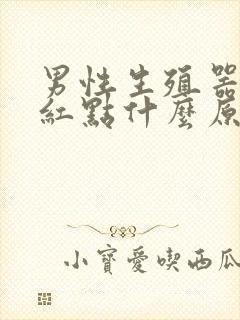 男性生殖器
紅點什麼原
小寶愛喫西瓜